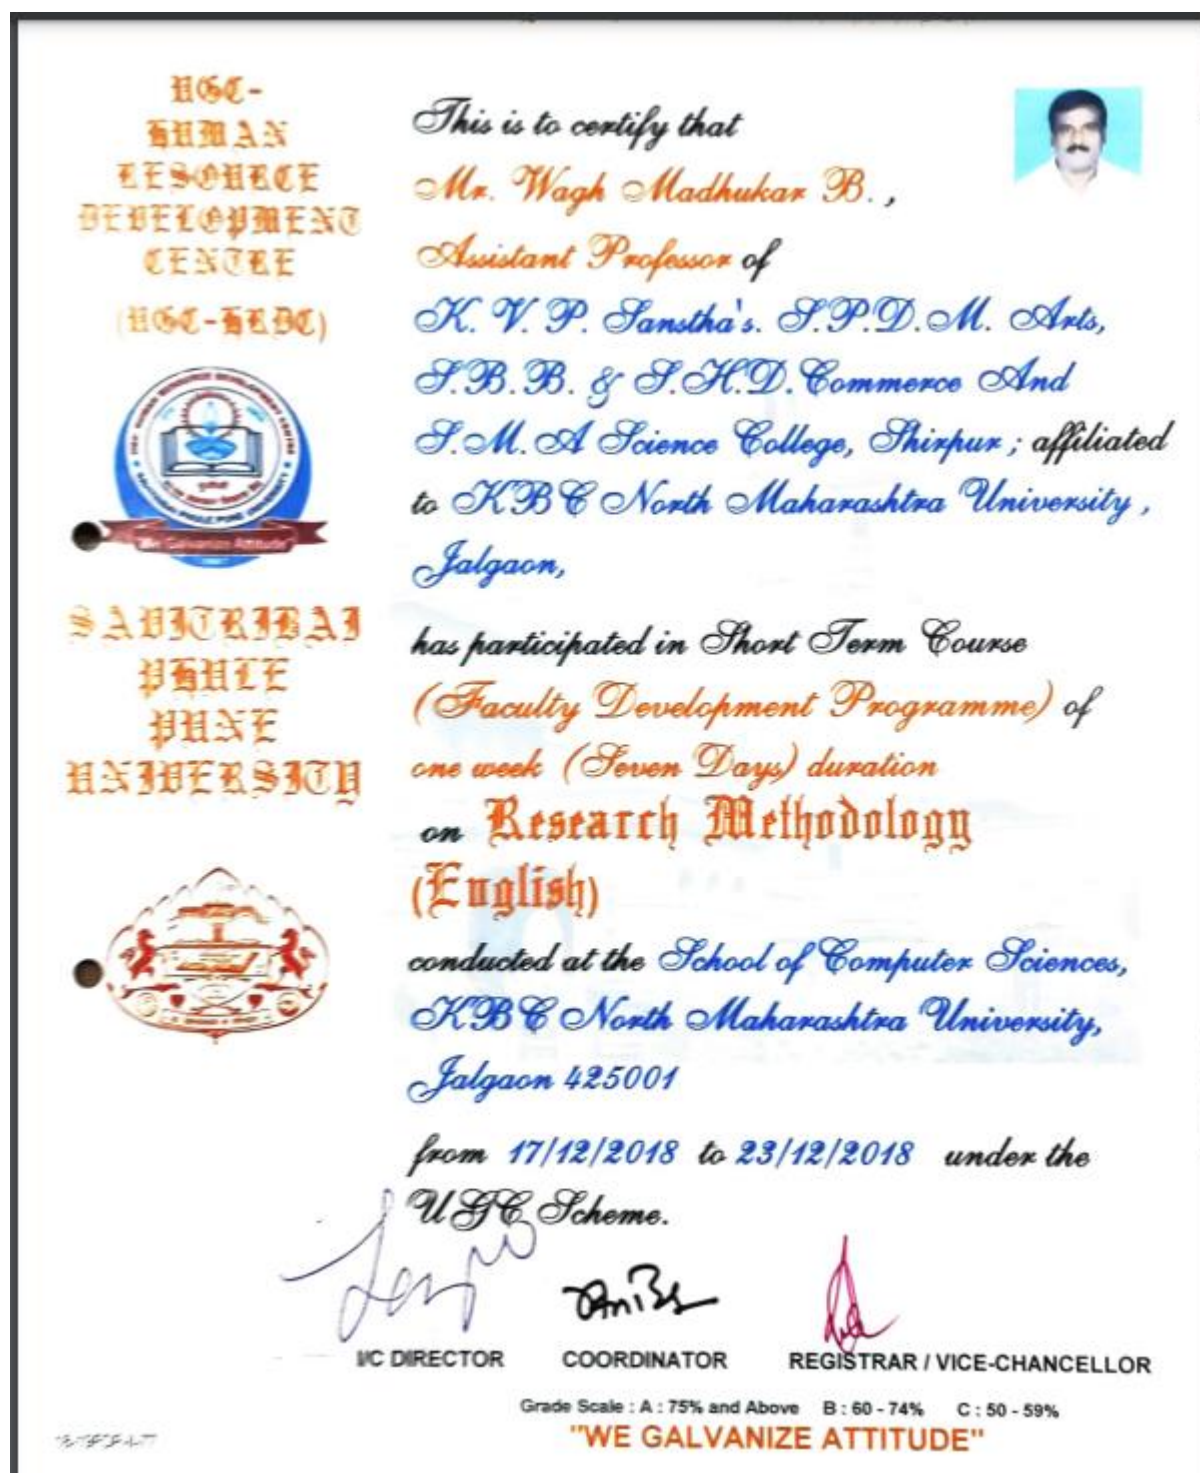 UGC-
HUMAN
RESOURCE
DEVELOPMENT
CENTRE
(UGC-HRDC)
"We Galvanize Attitude"
SAVITRIBAI
PHULE
PUNE
UNIVERSITY
This is to certify that
Mr. Wagh Madhukar B. ,
Assistant Professor of
K. V. P. Sanstha's. S.P.D.M. Arts,
S.B.B. & S.H.D. Commerce And
S.M.A Science College, Shirpur ; affiliated
to KBC North Maharashtra University ,
Jalgaon,
has participated in Short Term Course
(Faculty Development Programme) of
one week (Seven Days) duration
on Research Methodology
(English)
conducted at the School of Computer Sciences,
KBC North Maharashtra University,
Jalgaon 425001
from 17/12/2018 to 23/12/2018 under the
UGC Scheme.
I/C DIRECTOR COORDINATOR REGISTRAR / VICE-CHANCELLOR
Grade Scale : A : 75% and Above B : 60 - 74% C : 50 - 59%
"WE GALVANIZE ATTITUDE"